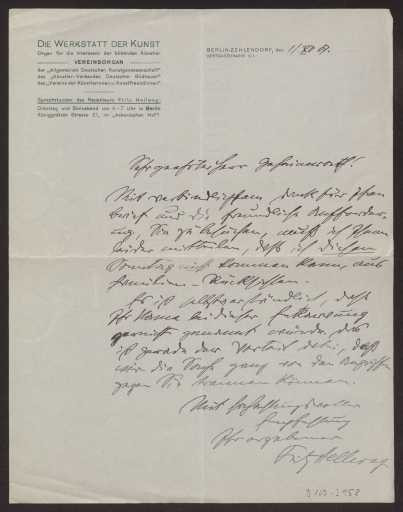 DIE WERKSTATT DER KUNST
Organ für die Interessen der bildenden Künstler
VEREINSORGAN
der „Allgemeinen Deutschen Kunstgenossenschaft"
des „Künstler-Verbandes Deutscher Bildhauer"
des „Vereins der Künstlerinnen u. Kunstfreundinnen"
Sprechstunden des Redakteurs Fritz Hellwag:
Dienstag und Sonnabend von 4-7 Uhr in Berlin
Königgrätzer Strasse 21, im „Askanischen Hof"
BERLIN-ZEHLENDORF, den 1/XII 09.
Sehr geehrter Herr Geheimrath!
Mit verbindlichstem Dank für Ihren
Brief und die freundliche Aufforder-
ung, Sie zu besuchen, muß ich Ihnen
leider mitteilen, daß ich diesen
Sonntag nicht kommen kann, aus
Familien-Rücksichten.
Es ist selbstverständlich, daß
Ihr Name bei dieser
garnicht genannt würde, das
ist gerade der Vorteil dabei, daß
wir die Sache ganz von den Angriffen
gegen Sie trennen können.
Mit hochachtungsvoller
Empfehlung
Ihr ergebener
Fritz Hellwag